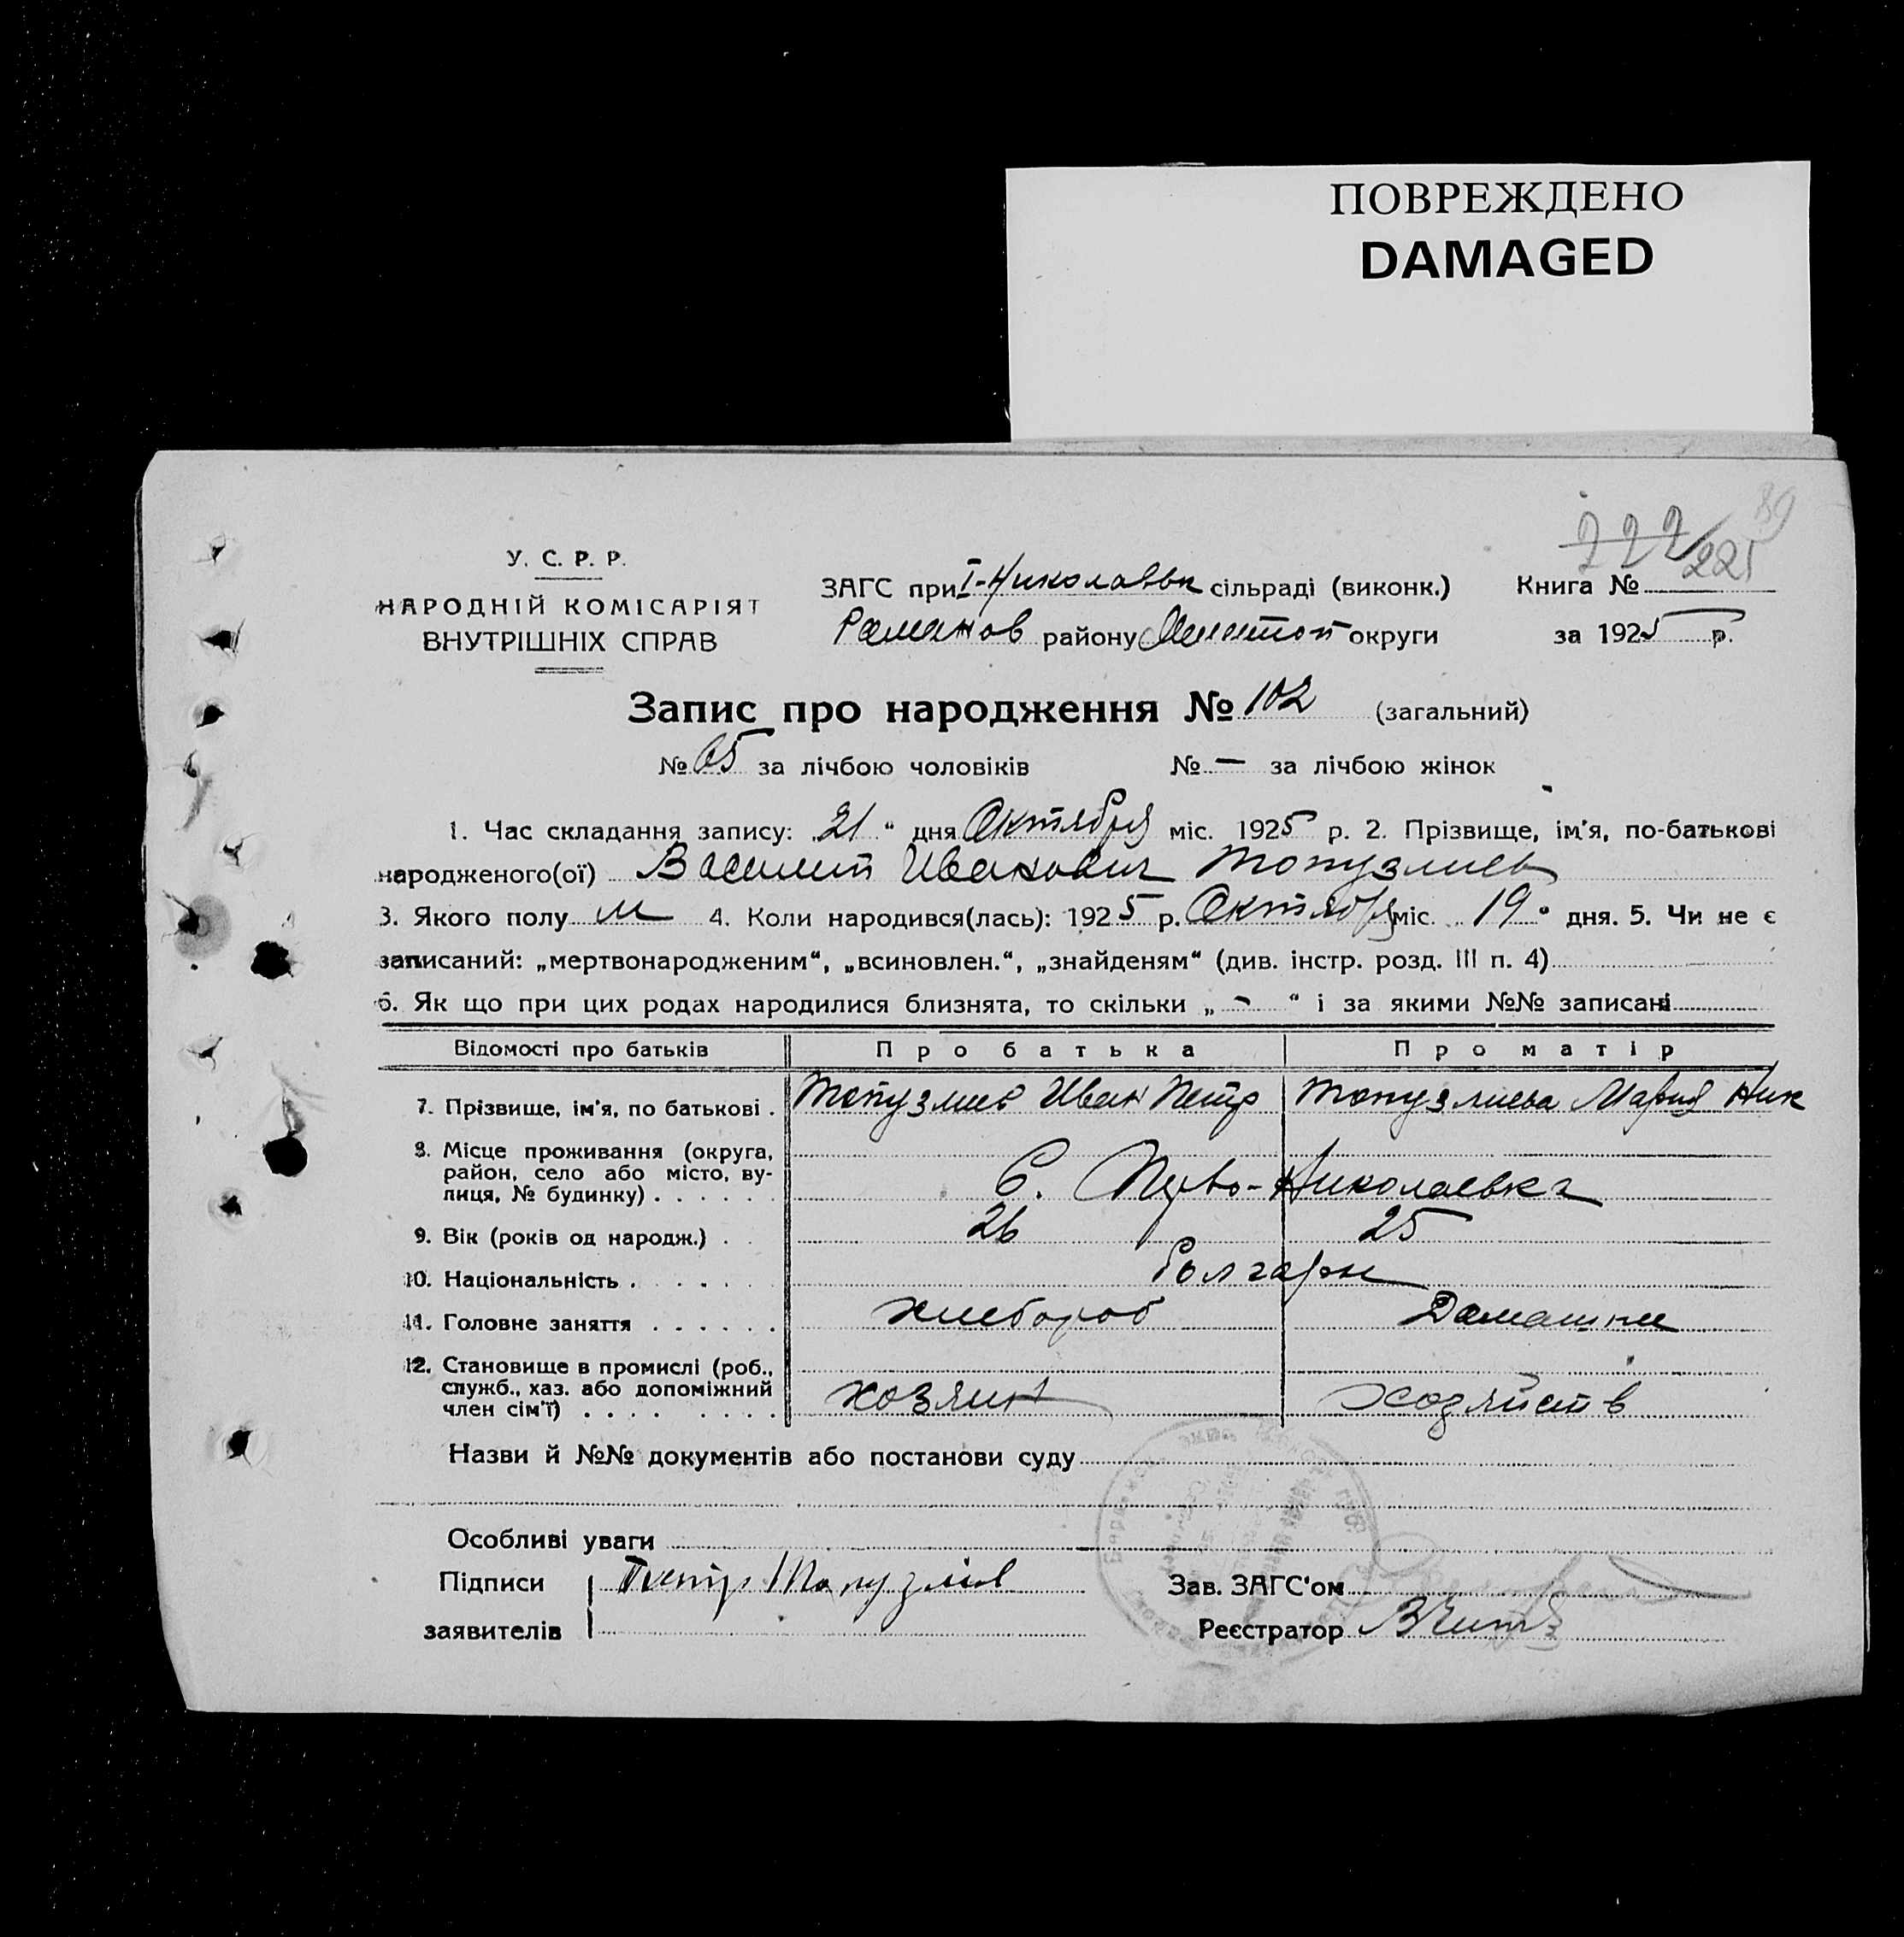 ПОВРЕЖДЕНО
DAMAGED
222/225 89
У. С. Р. Р.
НАРОДНІЙ КОМІСАРІЯТ
ВНУТРІШНІХ СПРАВ
ЗАГС при I-Николаевк сільраді (виконк.) Книга №
Раманов району округи за 1925 р.
Запис про народження № 102 (загальний)
№ 65 за лічбою чоловіків № — за лічбою жінок
1. Час складання запису: 21 " дня Октября міс. 1925 р. 2. Прізвище, ім'я, по-батькові
народженого(ої) Василий Иванович Топузлиев
3. Якого полу м 4. Коли народився(лась): 1925 р. Октября міс. 19 " дня. 5. Чи не є
записаний: „мертвонародженим“, „всиновлен.“, „знайденям“ (див. інстр. розд. III п. 4)
6. Як що при цих родах народилися близнята, то скільки „ - “ і за якими №№ записані
Відомості про батьків Про батька Про матір
7. Прізвище, ім'я, по батькові . Топузлиев Иван Петр Топузлиева Мария Ник
8. Місце проживання (округа,
район, село або місто, ву-
лиця, № будинку) . . . . . . С. Перво-Николаевка
9. Вік (років од народж.) . . 26 25
10. Національність . . . . . . Болгары
11. Головне заняття . . . . . . хлебороб Домашн
12. Становище в промислі (роб.,
служб., хаз. або допоміжний
член сім'ї) . . . . . . . . хозяин хозяйств
Назви й №№ документів або постанови суду
Особливі уваги
Підписи Петр Топузлиев Зав. ЗАГС'ом
заявителів Реєстратор